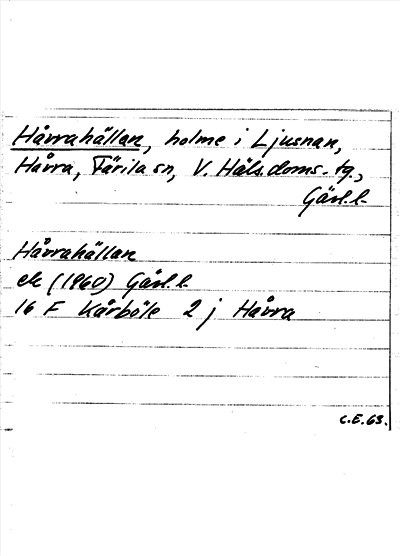 Hårrahällan, holme i Ljusnan,
Hårra, Färila sn, V. Häls. doms. tg.,
Gävl. l.
Hårrahällan
ek (1960) Gävl. l.
16 F Kårböle 2 j Hårra
C.E. 63.